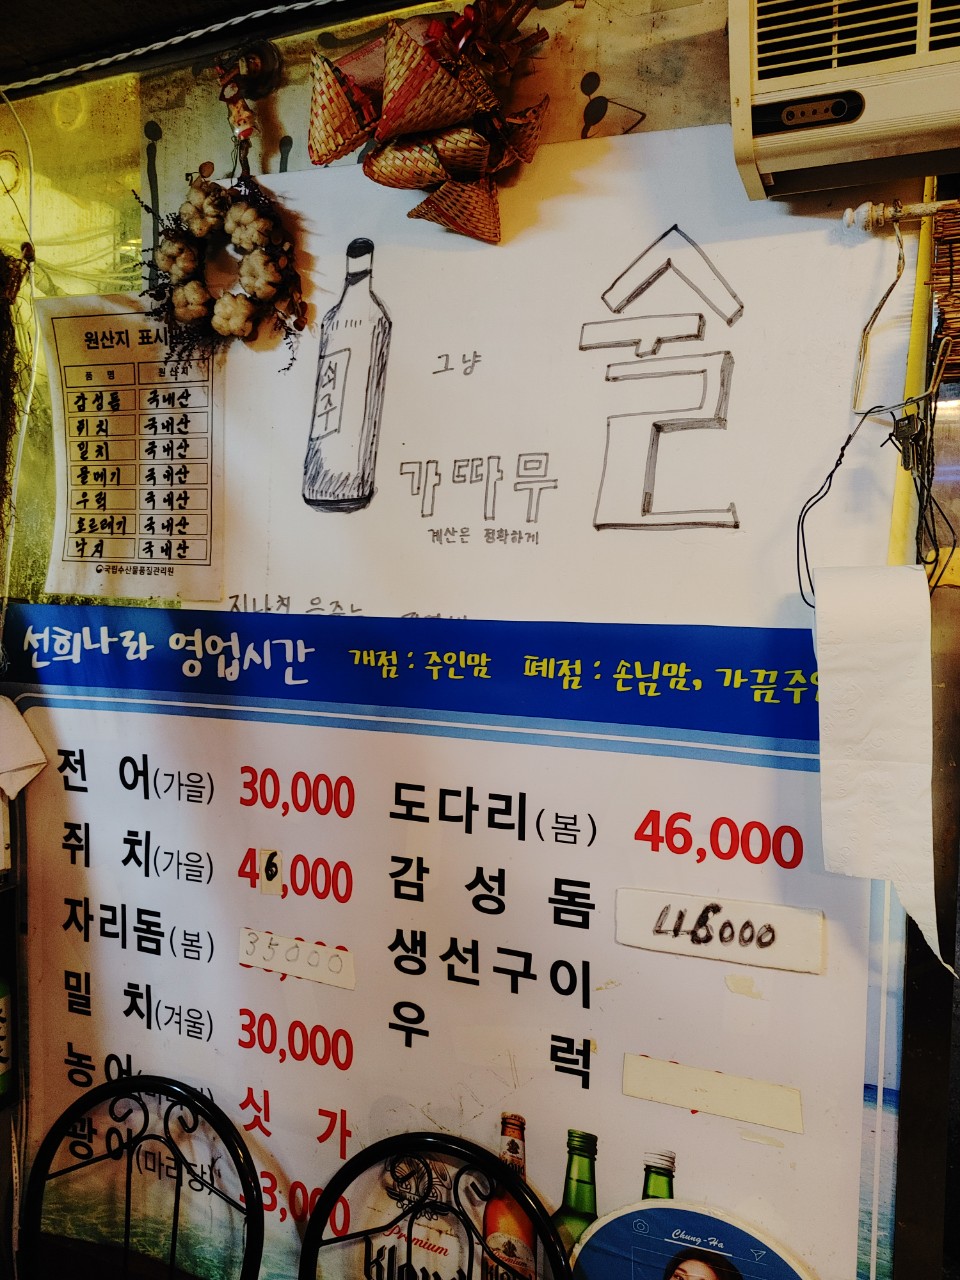 원산지 표시
품 명 원산지
감성돔 국내산
쥐치 국내산
밀치 국내산
물메기 국내산
우럭 국내산
호르래기 국내산
낙지 국내산
국립수산물품질관리원
쇠주
그냥
가따무
계산은 정확하게
술
지나친 음주는
선희나라 영업시간 개점 : 주인맘 폐점 : 손님맘, 가끔주인
전 어(가을) 30,000
쥐 치(가을) 46,000
자리돔(봄) 35000
밀 치(겨울) 30,000
농어 싯 가
광어(마리당) 33,000
도다리(봄) 46,000
감 성 돔 46000
생선구이
우 럭
Premium
Kloud
Chung-Ha